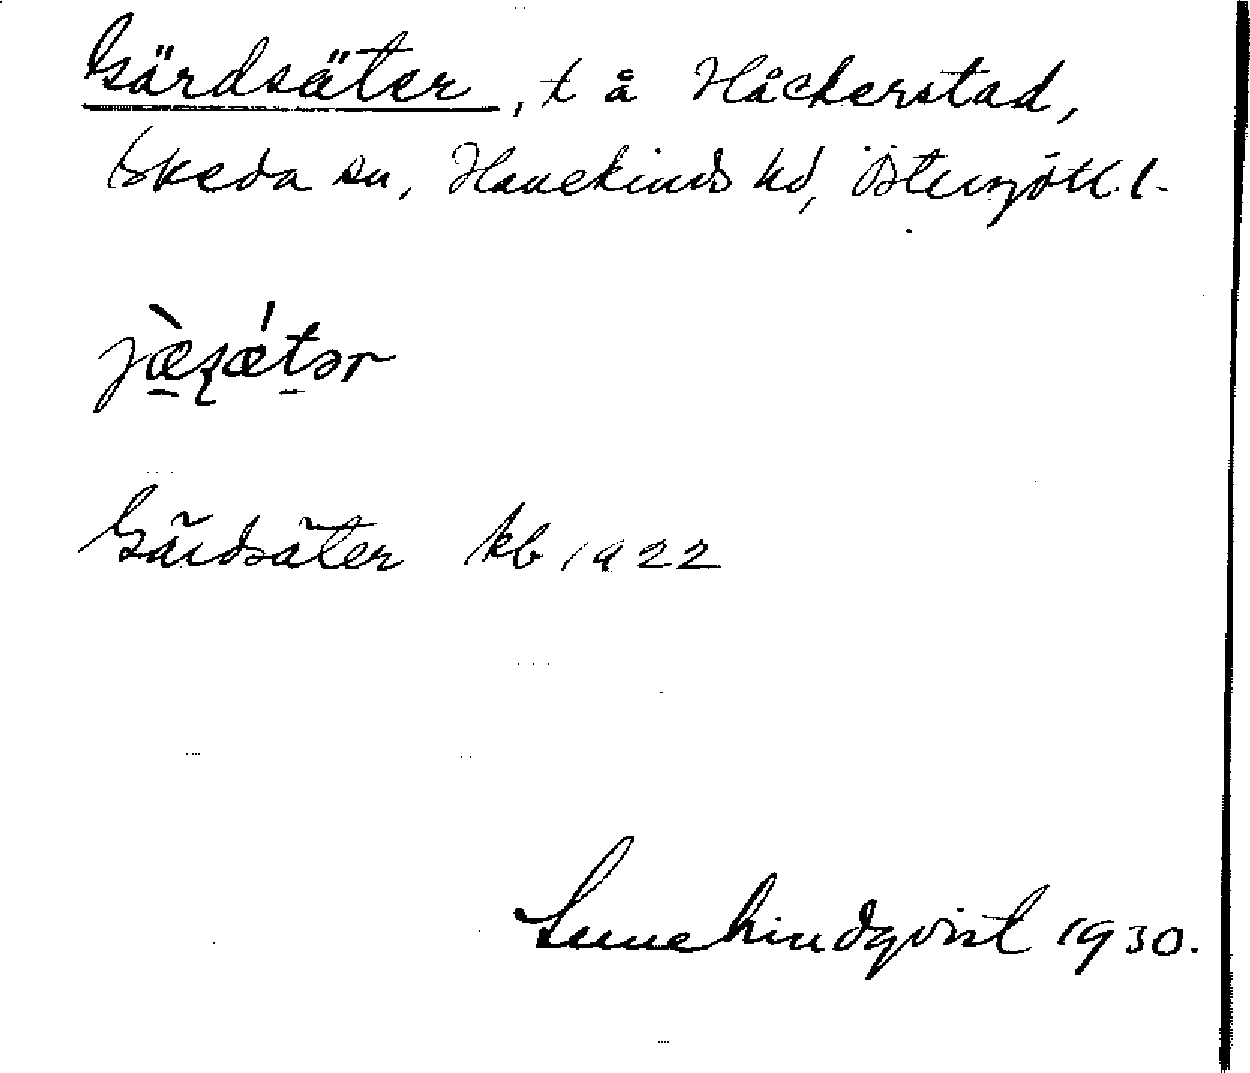 Gärdsäter, t å Håckerstad,
Skeda sn, Hanekinds hd, Östergötl. l.
jæ̀ʂǽtər
Gärdsäter kb 1922
Sune Lindqvist 1930.